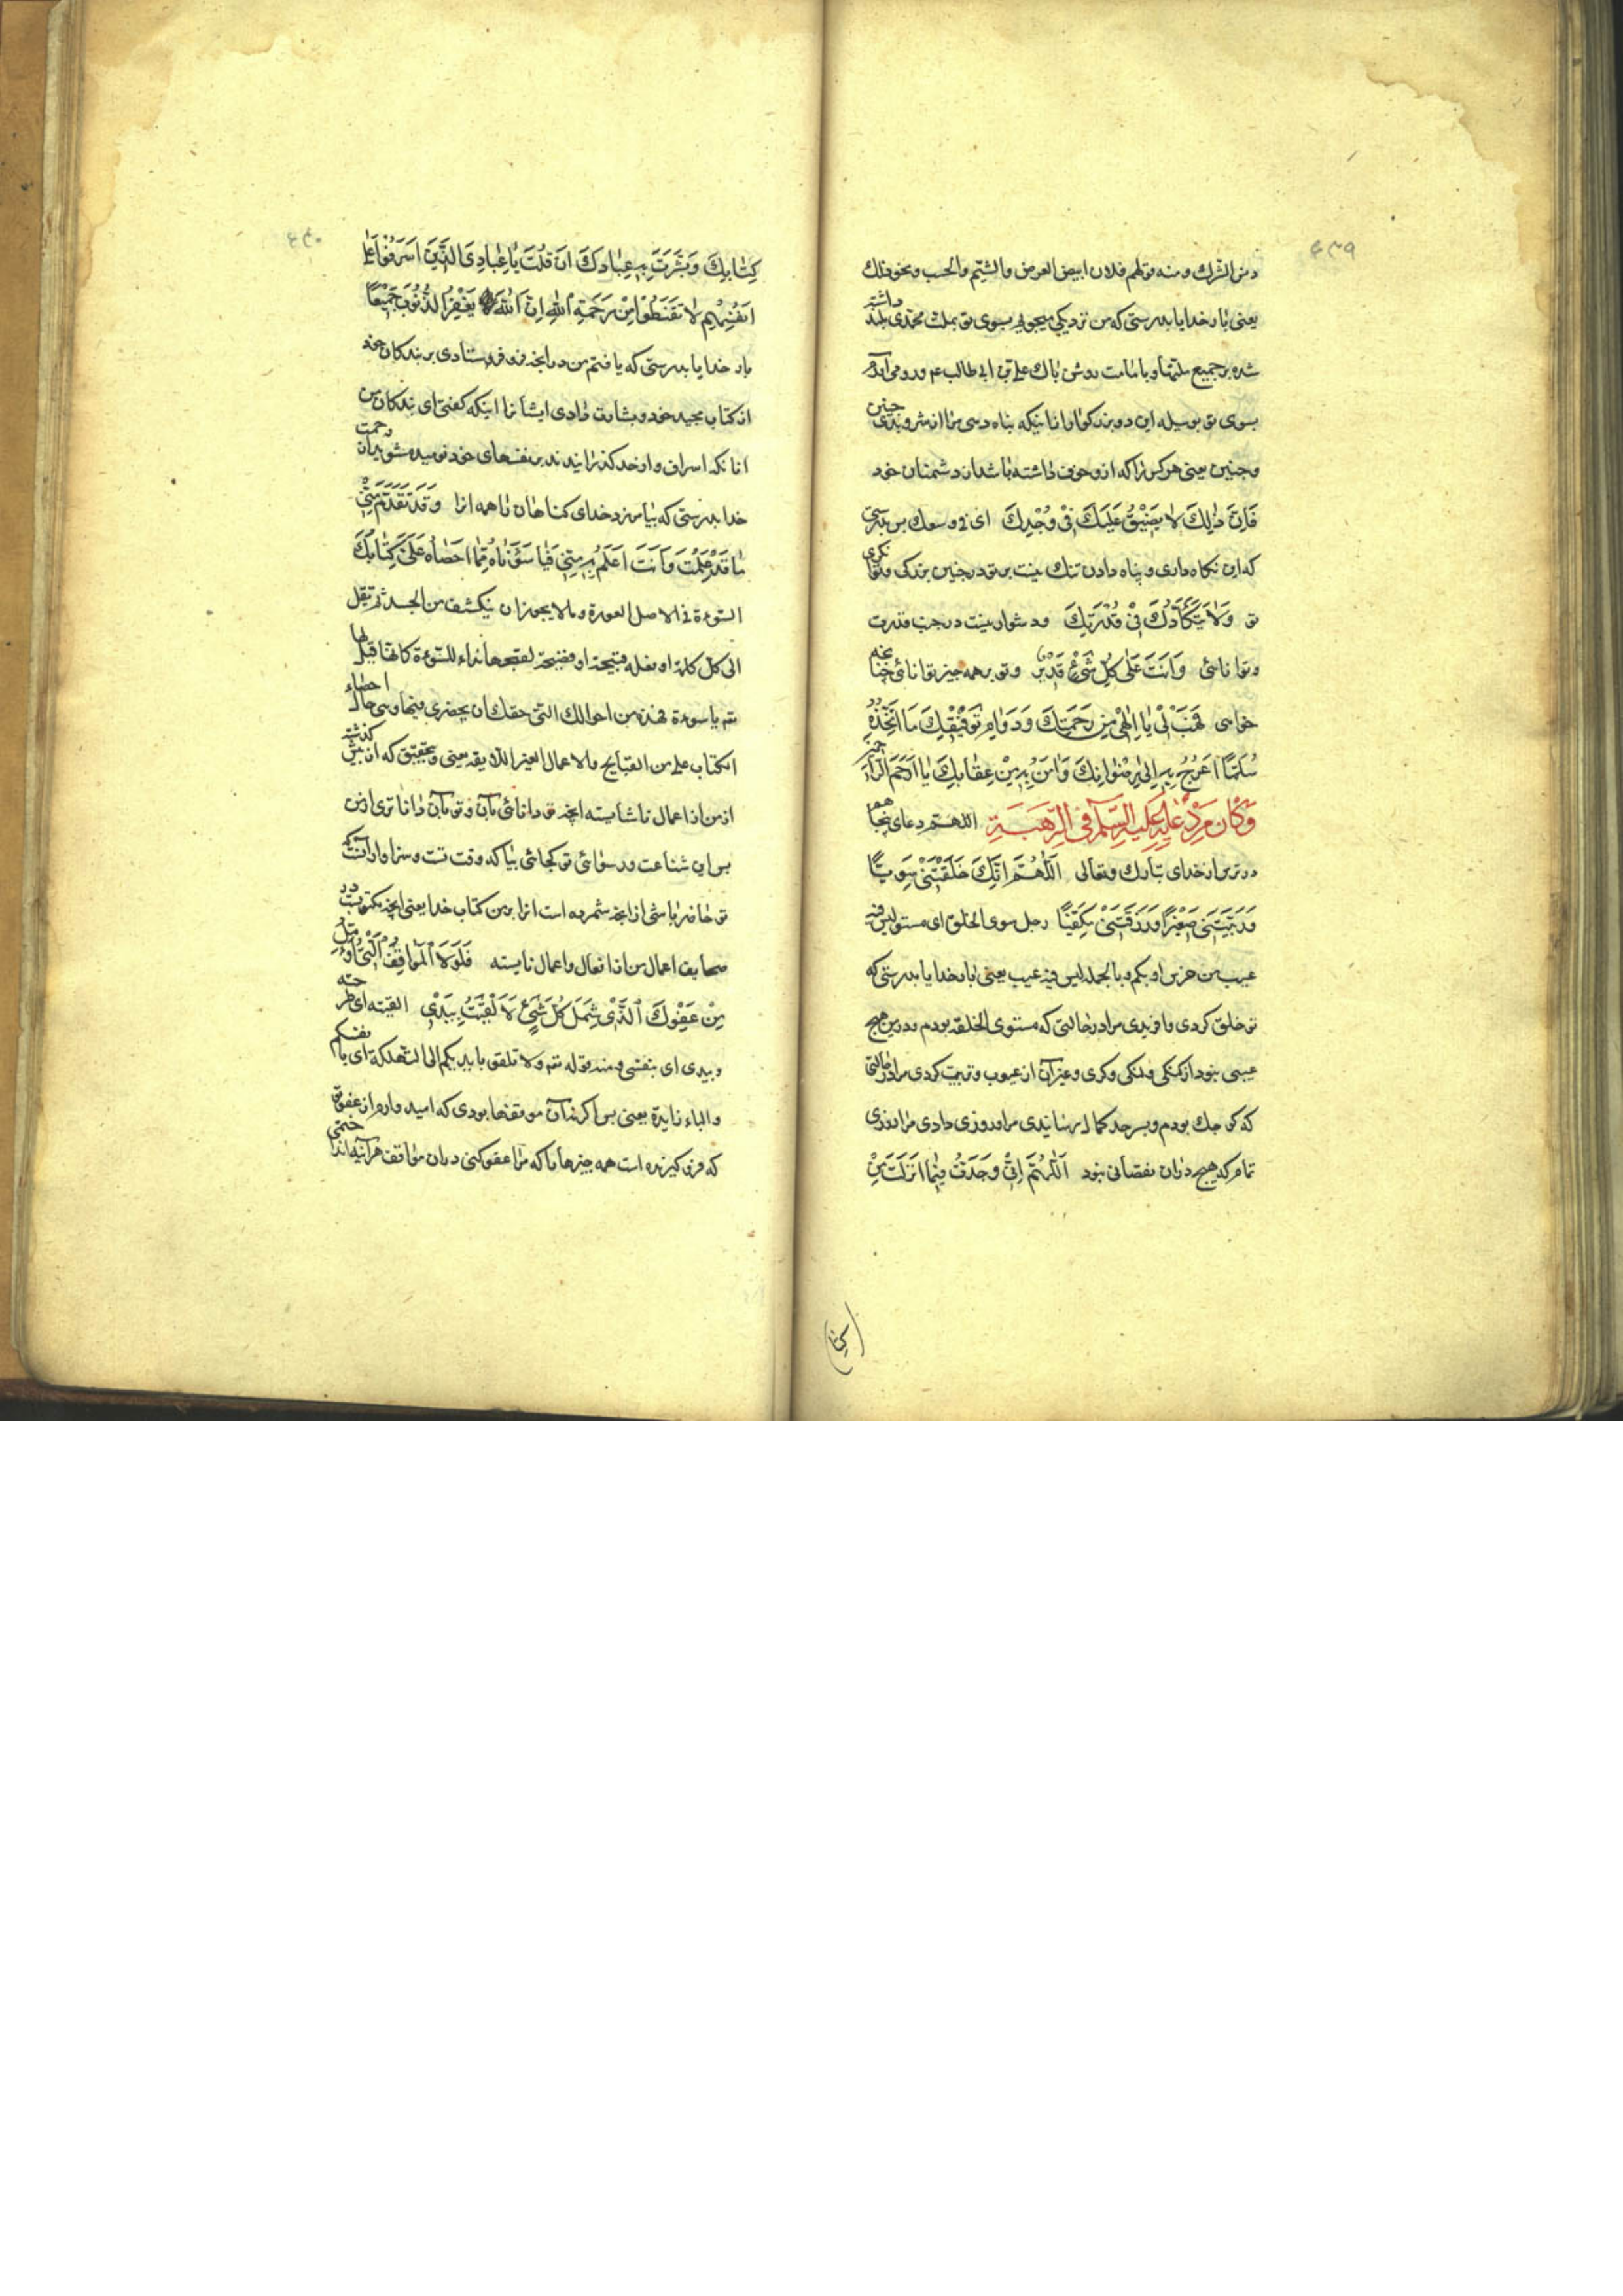 ۴۳۹
دنس الشرك و منه قولهم فلان ابیض العرض والشیم والحسب ونحو ذلك
یعنی بار خدایا بدرستی که من نزدیکی میجویم بسوی تو بملت محمدی بلند داشته
شده بر جمیع ملتها و بامامت روشن پاك علی بن ابی طالب ع و رو می آورم
بسوی تو بوسیله این دو بزرگوار بانکه پناه دهی مرا از شر و بدی چنین
و چنین یعنی هر کس را که ازو خوف داشته باشد از دشمنان خود
فَاِنَّ ذٰلِكَ لا یَضیقُ عَلَیكَ فی وُجْدِكَ ای فی وسعك پس بدرستی
که این نگاه داری و پناه دادن تنك نیست بر تو در جنب بزرکی و تونکری
تو وَلا یَتَكَأَّدُكَ فی قُدْرَتِكَ و دشوار نیست در جنب قدرت
و توانائی وَاَنْتَ عَلٰی كُلِّ شَیْءٍ قَدیر و تو بر همه چیز توانائی چنانچه
خواهی فَهَبْ لی یا اِلٰهی مِن رَحْمَتِكَ وَدَوامِ تَوْفیقِكَ ما اَتَّخِذُهُ
سُلَّمًا اَعْرُجُ بِهِ اِلٰی رِضْوانِكَ وَاٰمَنُ بِهِ مِنْ عِقابِكَ یا اَرْحَمَ الرّاحمین
وَكانَ مِن دُعائِهِ عَلَیهِ السَّلام فی الرَّهْبَةِ اللهم دعای پنجاهم
در ترس از خدای تبارك و تعالی اَللّٰهُمَّ اِنَّكَ خَلَقْتَنی سَوِیًّا
وَرَبَّیْتَنی صَغیرًا وَرَزَقْتَنی مَكْفِیًّا رجل سوی الخلق ای مستو لیس فیه
عیب من خرس او بکم و بالجمله لیس فیه عیب یعنی بار خدایا بدرستی که
تو خلق کردی و افریدی مرا در حالتی که مستوی الخلقه بودم و در من هیچ
عیبی نبود از کنکی و لنکی و کری و غیر آن از عیوب و تربیت کردی مرا در حالتی
که کوچك بودم و بسر حد کمال رسانیدی مرا و روزی دادی مرا روزی
تمام که هیچ دران نقصانی نبود اَللّٰهُمَّ اِنّی وَجَدْتُ فیما اَنْزَلْتَ مِنْ
كتا
۴۴۰
كِتابِكَ وَبَشَّرْتَ بِهِ عِبادَكَ اَنْ قُلْتَ یا عِبادِیَ الَّذینَ اَسْرَفُوا عَلٰی
اَنْفُسِهِم لا تَقْنَطُوا مِنْ رَحْمَةِ اللهِ اِنَّ اللهَ یَغْفِرُ الذُّنُوبَ جَمیعًا
بار خدایا بدرستی که یافتم من در انچه فرو فرستادی بر بندکان خود
از کتاب مجید خود و بشارت دادی ایشانرا اینکه کفتی ای بندکان من
انانکه اسراف و از حد کذرانیدند بر نفسهای خود نومید مشوید از رحمت
خدا بدرستی که بیامرزد خدای کناهان را همه انرا وَقَدْ تَقَدَّمَ مِنّی
ما قَدْ عَلِمْتَ وَما اَنْتَ اَعْلَمُ بِهِ مِنّی فَیا سَوْأَتاهُ مِمّا اَحْصاهُ عَلَیَّ كِتابُكَ
السوءة فی الاصل العورة و مالا یجوز ان ینکشف من الجسد ثم نقل
الی کل کلمة او فعله قبیحة او فضیحة لقبحها نداء للسوءة کانها قیل لها
تعالی یا سوءة فهذه من احوالك التی حقك ان یحضری فیها وهی حال احصاء
الکتاب علی من القبایح والاعمال الغیر اللایقه یعنی وبتحقیق که از پیش کذشته
از من از اعمال ناشایسته انچه تو دانائی بآن و تو بآن داناتری از من
پس ای شناعت و رسوائی تو کجائی بیا که وقت تست و سزاوار آنست که
تو حاضر باشی از انچه شمرده است انرا بر من کتاب خدا یعنی انچه مکتوبست در
صحایف اعمال من از افعال و اعمال نابایسته فَلَوْلا الْمَواقِفُ الَّتی اُؤَمِّلُ
مِنْ عَفْوِكَ الَّذی شَمِلَ كُلَّ شَیْءٍ لَاَلْقَیْتُ بِیَدی القیته ای طرحته
وبیدی ای بنفسی و منه قوله تعالی ولا تلقوا بایدیکم الی التهلکة ای بانفسکم
والباء زایدة یعنی پس اکر نه آن موقفها بودی که امید وارم از عفو تو
که فرو کیرنده است همه چیزها را که مرا عفو کنی دران مواقف هر آینه انداختمی